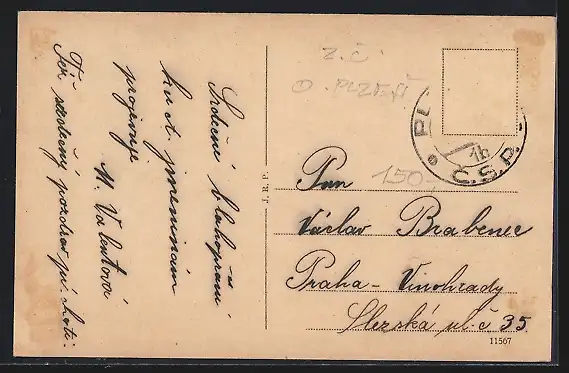 Srdečné blahopřání
kuct. jmeninám
projevuje
M. Valentová
Též srdečný pozdrav
Z.Č.
O. PLZEŇ
150,-
PL
1b
Č.S.P.
J. R. P.
Pan
Václav Brabenec
Praha - Vinohrady
Slezská ul. č 35
11567